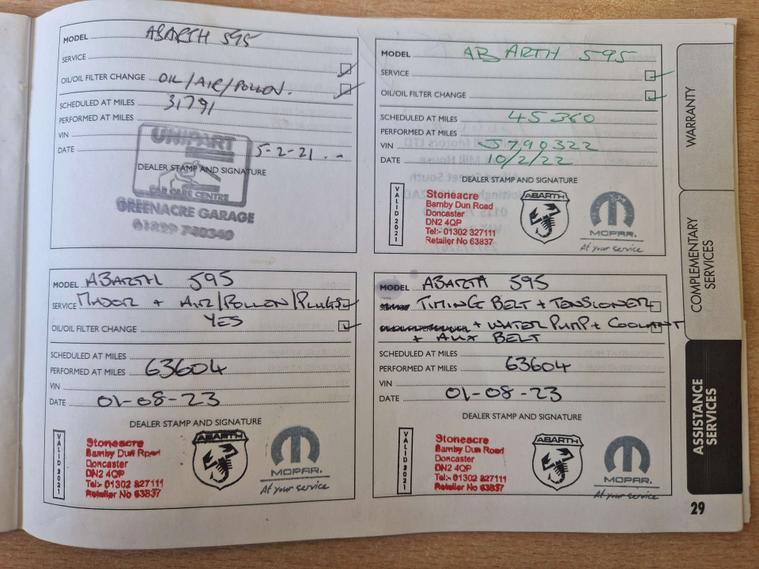 MODEL ABARTH 595
SERVICE
OIL/OIL FILTER CHANGE OIL/AIR/POLLEN.
SCHEDULED AT MILES 31791
PERFORMED AT MILES
VIN
DATE 5-2-21
DEALER STAMP AND SIGNATURE
UNIPART
CAR CARE CENTRE
GREENACRE GARAGE
MODEL ABARTH 595
SERVICE
OIL/OIL FILTER CHANGE
SCHEDULED AT MILES 45360
PERFORMED AT MILES
VIN J790322
DATE 10/2/22
DEALER STAMP AND SIGNATURE
VALID 2021
Stoneacre
Barnby Dun Road
Doncaster
DN2 4QP
Tel:- 01302 327111
Retailer No 63837
ABARTH
MOPAR
At your service
MODEL ABARTH 595
SERVICE MAJOR + AIR/POLLEN/PLUGS
OIL/OIL FILTER CHANGE YES
SCHEDULED AT MILES
PERFORMED AT MILES 63604
VIN
DATE 01-08-23
DEALER STAMP AND SIGNATURE
VALID 2021
Stoneacre
Barnby Dun Road
Doncaster
DN2 4QP
Tel:- 01302 327111
Retailer No 63837
ABARTH
MOPAR.
At your service
MODEL ABARTH 595
TIMING BELT + TENSIONER
+ WATER PUMP + COOLANT
+ AUX BELT
SCHEDULED AT MILES
PERFORMED AT MILES 63604
VIN
DATE 01-08-23
DEALER STAMP AND SIGNATURE
VALID 2021
Stoneacre
Barnby Dun Road
Doncaster
DN2 4QP
Tel:- 01302 327111
Retailer No 63837
ABARTH
MOPAR.
At your service
WARRANTY
COMPLEMENTARY SERVICES
ASSISTANCE SERVICES
29